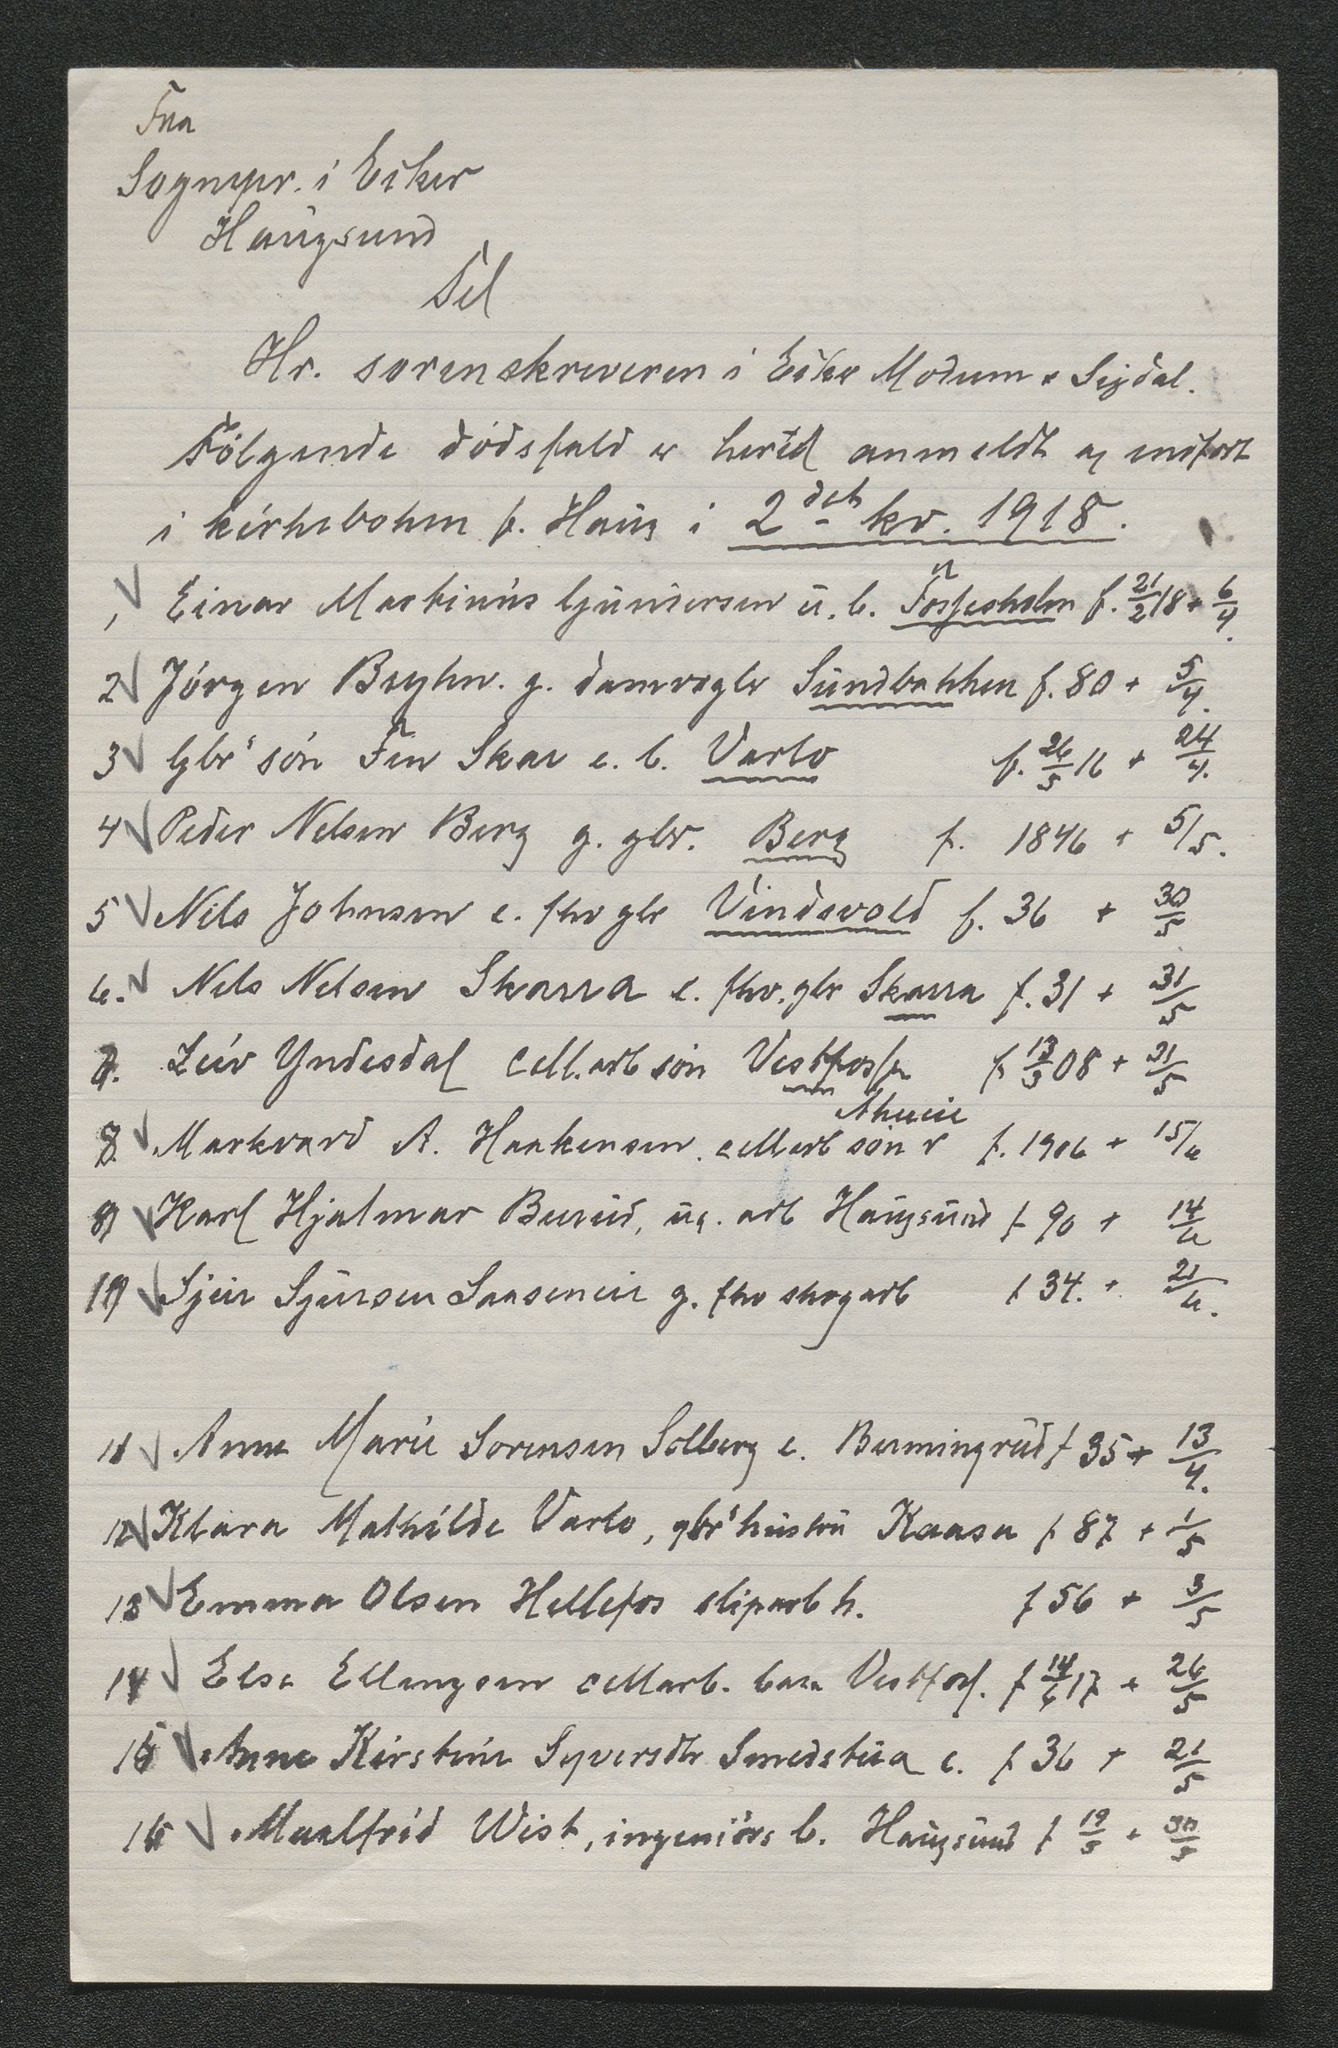 Fra
Sognepr. i Eiker
Haugsund
Til
Hr. sorenskriveren i Eiker Modum & Sigdal.
Følgende dødsfald er hertil anmeldt og indført
i kirkeboken f. Haug i 2det kv. 1918.
1, Einar Martinius Gundersen u. b. Fossesholm f. 21/2 18 + 6/4.
2 Jörgen Bryhn. g. damvogter Sundbakken f. 80 + 5/4.
3 Gbr's sön Finn Skar e. b. Varlo f. 26/5 16 + 24/4.
4 Peder Nelsen Berg g. gbr. Berg f. 1846 + 5/5.
5 Nils Johnsen e. fhv gbr Vindsvold f. 36 + 30/5
6. Nils Nilsen Skarra e. fhv. gbr Skarra f. 31 + 31/5
7. Leiv Yndesdal cell.arb sön Vestfossen f 13/3 08 + 31/5
8 Markvard A. Haakensen. cellarb sön f. 1906 + 15/6
9 Karl Hjalmar Burud, ug. arb Haugsund f 90 + 14/6
10 Sjur Sjursen g. fhv skogarb f 34. + 21/6.
11 Anne Marie Sorensen Solberg e. f 35 + 13/4.
12 Klara Mathilde Varlo, gbr's hustru Kaasa f 87 + 1/5
13 Emma Olsen Hellefos sliparb h. f 56 + 3/5
14 Else Ellingsen cellarb. barn Vestfos. f 14/6 17 + 26/5
15 Anne Kirstine Syversdtr Smedstua e. f 36 + 21/5
16 Maalfrid Wist, ingeniörs b. Haugsund f 19/5 + 30/5